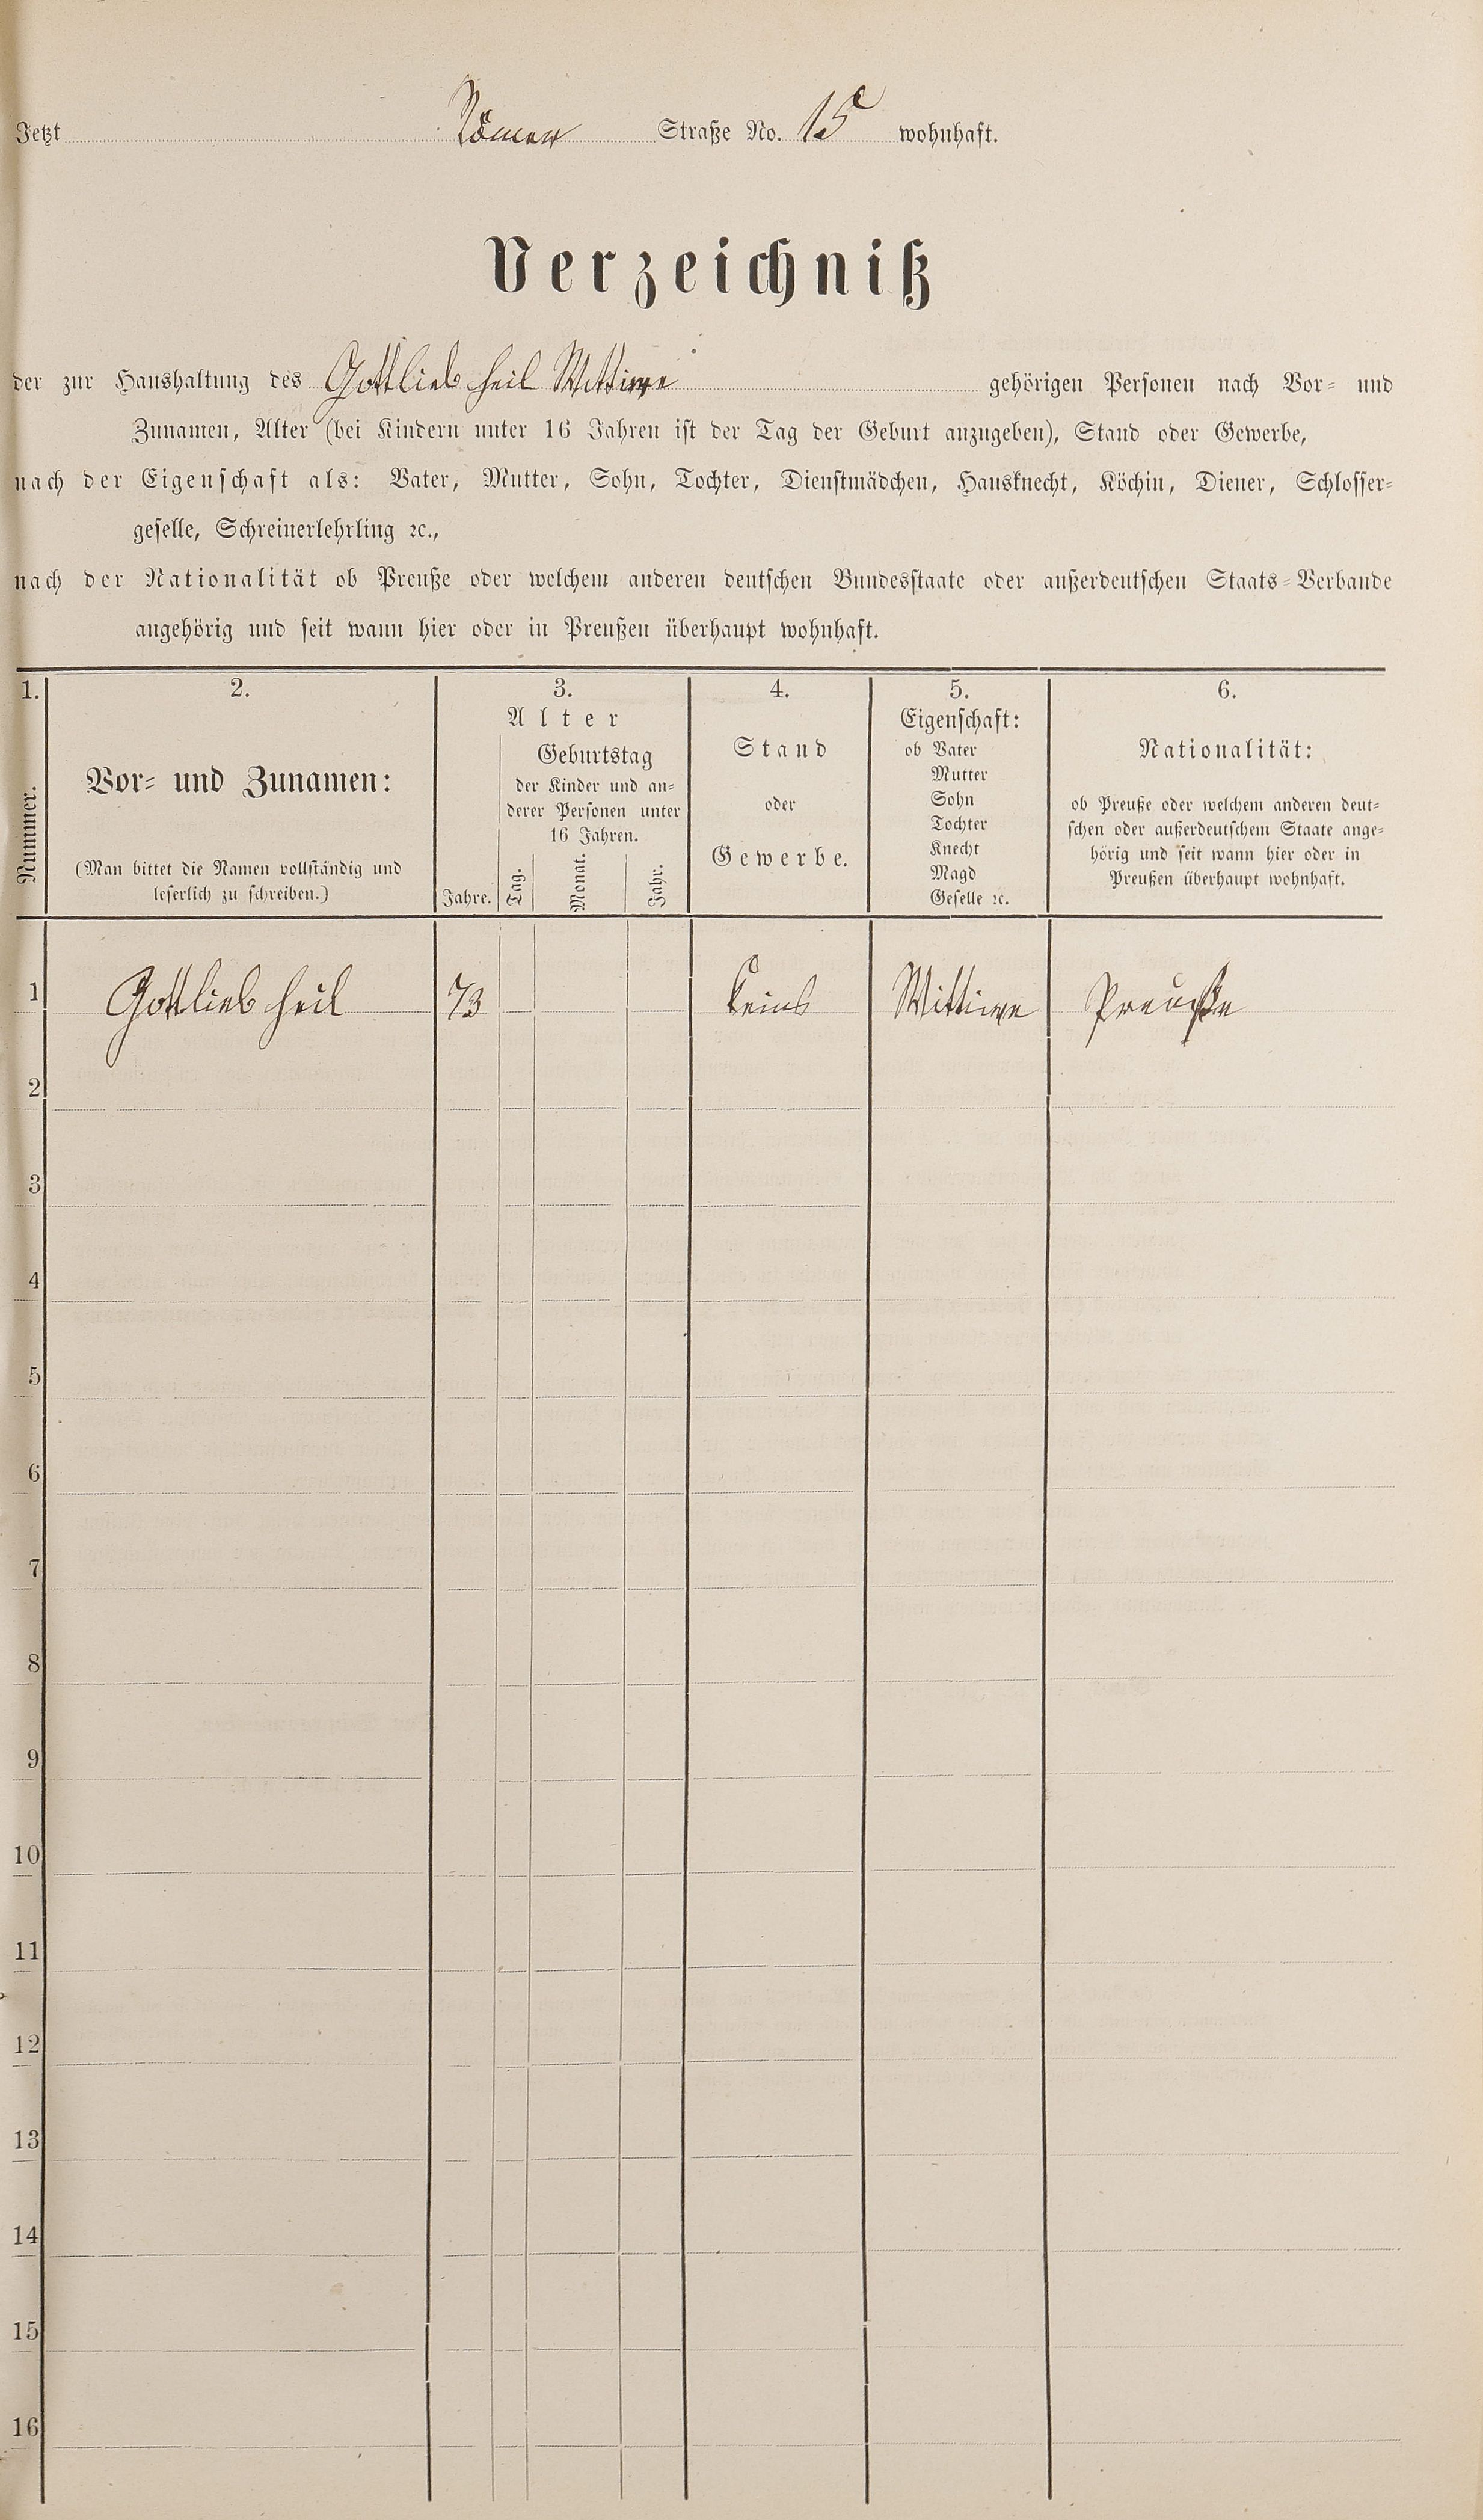 Jetzt Römer Straße No. 15 wohnhaft.
Verzeichniß
der zur Haushaltung des Gottlieb Heil Wittwe gehörigen Personen nach Vor- und
Zunamen, Alter (bei Kindern unter 16 Jahren ist der Tag der Geburt anzugeben), Stand oder Gewerbe,
nach der Eigenschaft als: Vater, Mutter, Sohn, Tochter, Dienstmädchen, Hausknecht, Köchin, Diener, Schlosser-
geselle, Schreinerlehrling ꝛc.,
nach der Nationalität ob Preuße oder welchem anderen deutschen Bundesstaate oder außerdeutschen Staats-Verbande
angehörig und seit wann hier oder in Preußen überhaupt wohnhaft.
1.
Nummer.
2.
Vor- und Zunamen:
(Man bittet die Namen vollständig und
leserlich zu schreiben.)
3.
Alter
Jahre.
Geburtstag
der Kinder und an-
derer Personen unter
16 Jahren.
Tag.
Monat.
Jahr.
4.
Stand
oder
Gewerbe.
5.
Eigenschaft:
ob Vater
Mutter
Sohn
Tochter
Knecht
Magd
Geselle ꝛc.
6.
Nationalität:
ob Preuße oder welchem anderen deut-
schen oder außerdeutschem Staate ange-
hörig und seit wann hier oder in
Preußen überhaupt wohnhaft.
1 Gottlieb Heil 73 Keins Wittwe Preuße
2
3
4
5
6
7
8
9
10
11
12
13
14
15
16